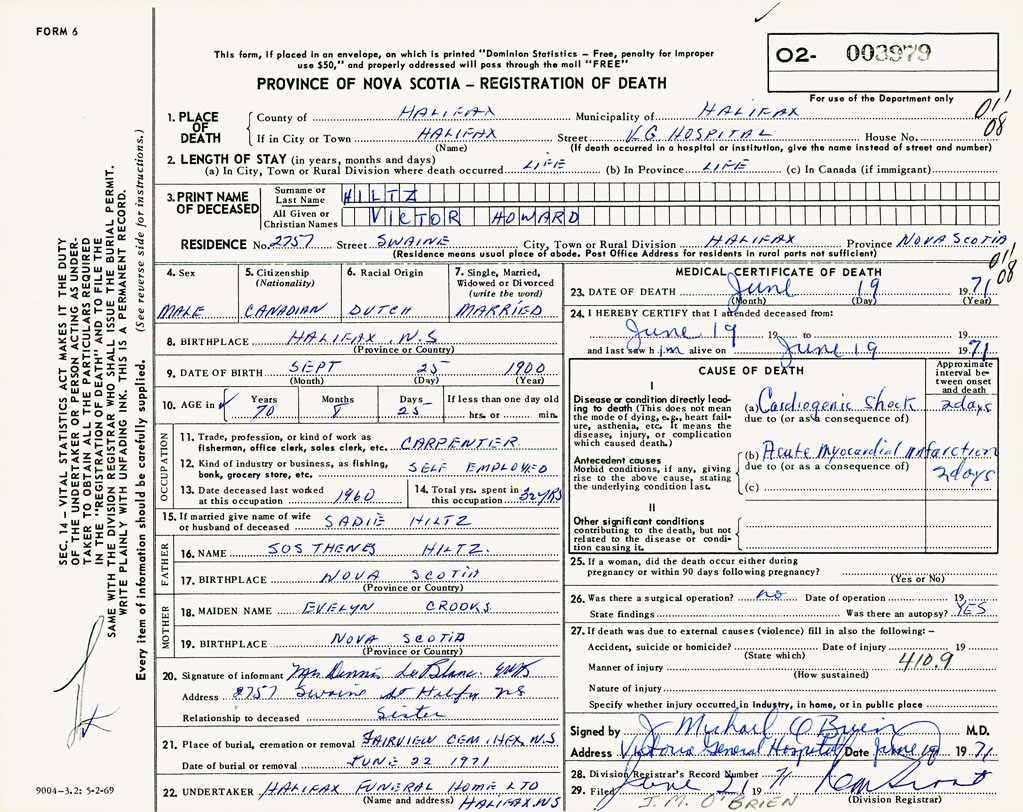 FORM 6
This form, if placed in an envelope, on which is printed "Dominion Statistics – Free, penalty for improper
use $50," and properly addressed will pass through the mail "FREE"
PROVINCE OF NOVA SCOTIA – REGISTRATION OF DEATH
O2- 003979
For use of the Department only
1. PLACE OF DEATH
County of HALIFAX Municipality of HALIFAX
If in City or Town HALIFAX Street V.G. HOSPITAL House No.
(Name) (If death occurred in a hospital or institution, give the name instead of street and number)
01'
08
2. LENGTH OF STAY (in years, months and days)
(a) In City, Town or Rural Division where death occurred LIFE (b) In Province LIFE (c) In Canada (if immigrant)
3. PRINT NAME OF DECEASED
Surname or Last Name HILTZ
All Given or Christian Names VICTOR HOWARD
RESIDENCE No. 2757 Street SWAINE City, Town or Rural Division HALIFAX Province NOVA SCOTIA
(Residence means usual place of abode. Post Office Address for residents in rural parts not sufficient)
01'
08
4. Sex
MALE
5. Citizenship
(Nationality)
CANADIAN
6. Racial Origin
DUTCH
7. Single, Married,
Widowed or Divorced
(write the word)
MARRIED
8. BIRTHPLACE HALIFAX N.S
(Province or Country)
9. DATE OF BIRTH SEPT 25 1900
(Month) (Day) (Year)
10. AGE in Years Months Days If less than one day old
70 8 25 hrs. or min.
OCCUPATION
11. Trade, profession, or kind of work as
fisherman, office clerk, sales clerk, etc. CARPENTER
12. Kind of industry or business, as fishing,
bank, grocery store, etc. SELF EMPLOYED
13. Date deceased last worked
at this occupation 1960
14. Total yrs. spent in
this occupation 32 YRS
15. If married give name of wife
or husband of deceased SADIE HILTZ
FATHER
16. NAME SOSTHENES HILTZ.
17. BIRTHPLACE NOVA SCOTIA
(Province or Country)
MOTHER
18. MAIDEN NAME EVELYN CROOKS
19. BIRTHPLACE NOVA SCOTIA
(Province or Country)
20. Signature of informant Mrs Dennis LeBlanc
Address 2757 Swaine St Hlfx NS
Relationship to deceased Sister
21. Place of burial, cremation or removal FAIRVIEW CEM. HFX, N.S
Date of burial or removal JUNE 22 1971
22. UNDERTAKER HALIFAX FUNERAL HOME LTD
(Name and address) HALIFAX NS
MEDICAL CERTIFICATE OF DEATH
23. DATE OF DEATH June 19 1971
(Month) (Day) (Year)
24. I HEREBY CERTIFY that I attended deceased from:
June 19 19 to 19
and last saw him alive on June 19 1971
CAUSE OF DEATH
Approximate interval between onset and death
I
Disease or condition directly leading to death (This does not mean the mode of dying, e.g., heart failure, asthenia, etc. It means the disease, injury, or complication which caused death.)
(a) Cardiogenic Shock 2 days
due to (or as a consequence of)
Antecedent causes
Morbid conditions, if any, giving rise to the above cause, stating the underlying condition last.
(b) Acute myocardial infarction
due to (or as a consequence of) 2 days
(c)
II
Other significant conditions
contributing to the death, but not related to the disease or condition causing it.
25. If a woman, did the death occur either during
pregnancy or within 90 days following pregnancy?
(Yes or No)
26. Was there a surgical operation? no Date of operation 19
State findings Was there an autopsy? YES
27. If death was due to external causes (violence) fill in also the following: –
Accident, suicide or homicide? Date of injury 19
(State which) 410.9
Manner of injury
(How sustained)
Nature of injury
Specify whether injury occurred in industry, in home, or in public place
Signed by J. Michael O'Brien M.D.
Address Victoria General Hospital Date June 19 1971
28. Division Registrar's Record Number
29. Filed June 21 1971
(Division Registrar)
J. M. O'BRIEN
SEC. 14 – VITAL STATISTICS ACT MAKES IT THE DUTY
OF THE UNDERTAKER OR PERSON ACTING AS UNDER-
TAKER TO OBTAIN ALL THE PARTICULARS REQUIRED
IN THE "REGISTRATION OF DEATH" AND TO FILE THE
SAME WITH THE DIVISION REGISTRAR WHO SHALL ISSUE THE BURIAL PERMIT.
WRITE PLAINLY WITH UNFADING INK. THIS IS A PERMANENT RECORD.
Every item of information should be carefully supplied. (See reverse side for instructions.)
9004-3.2: 5-2-69